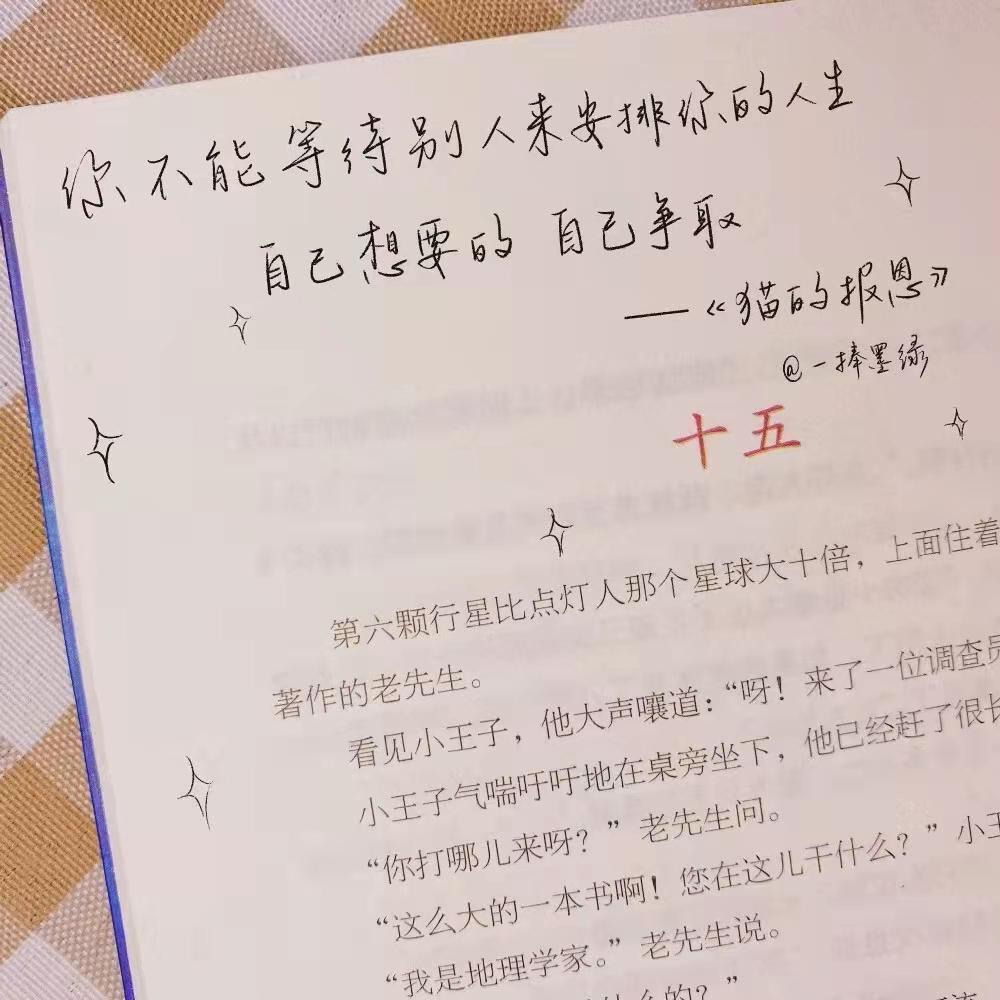 你不能等待别人来安排你的人生
自己想要的 自己争取
——《猫的报恩》
@一捧墨绿
十五
第六颗行星比点灯人那个星球大十倍，上面住着
著作的老先生。
看见小王子，他大声嚷道：“呀！来了一位调查员
小王子气喘吁吁地在桌旁坐下，他已经赶了很长
“你打哪儿来呀？”老先生问。
“这么大的一本书啊！您在这儿干什么？”小王
“我是地理学家。”老先生说。
什么的？”